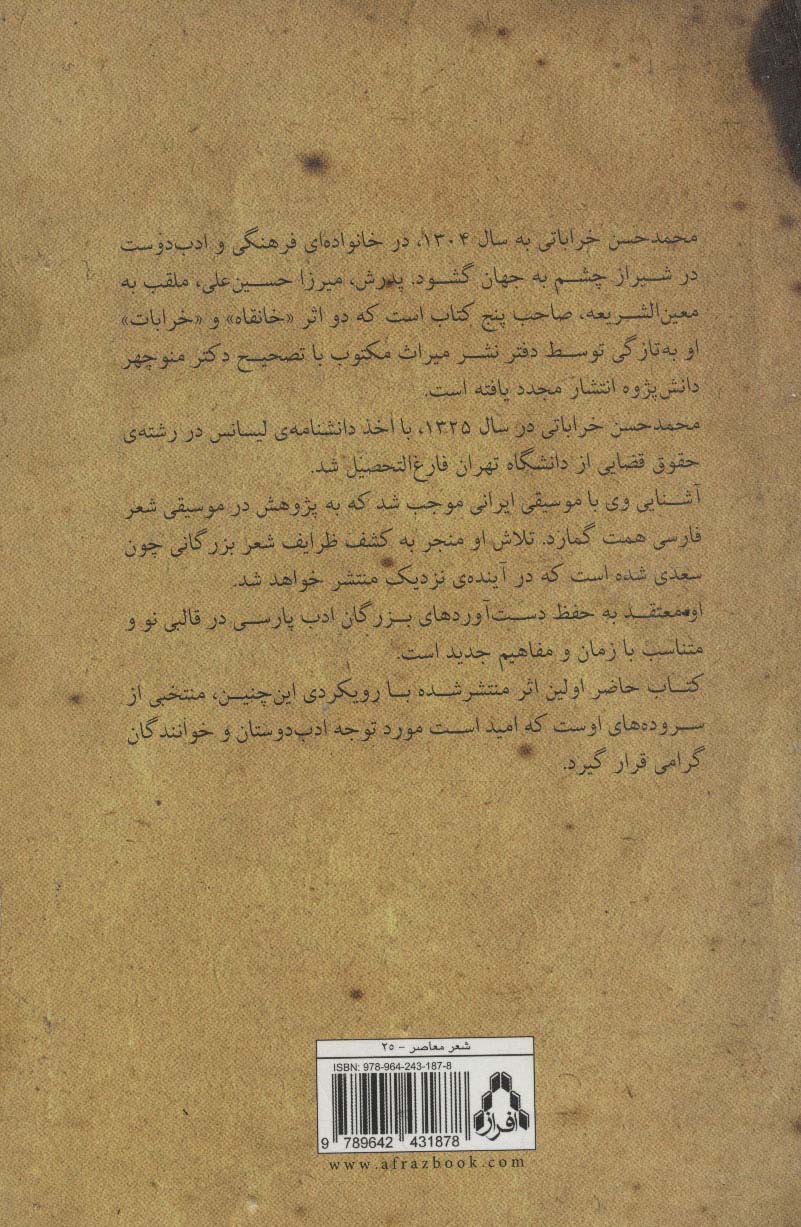 محمدحسن خراباتی به سال ۱۳۰۴، در خانواده‌ای فرهنگی و ادب‌دوست
در شیراز چشم به جهان گشود. پدرش، میرزا حسین‌علی، ملقب به
معین‌الشریعه، صاحب پنج کتاب است که دو اثر «خانقاه» و «خرابات»
او به‌تازگی توسط دفتر نشر میراث مکتوب با تصحیح دکتر منوچهر
دانش‌پژوه انتشار مجدد یافته است.
محمدحسن خراباتی در سال ۱۳۲۵، با اخذ دانشنامه‌ی لیسانس در رشته‌ی
حقوق قضایی از دانشگاه تهران فارغ‌التحصیل شد.
آشنایی وی با موسیقی ایرانی موجب شد که به پژوهش در موسیقی شعر
فارسی همت گمارد. تلاش او منجر به کشف ظرایف شعر بزرگانی چون
سعدی شده است که در آینده‌ی نزدیک منتشر خواهد شد.
او معتقد به حفظ دست‌آوردهای بزرگان ادب پارسی در قالبی نو و
متناسب با زمان و مفاهیم جدید است.
کتاب حاضر اولین اثر منتشرشده با رویکردی این‌چنین، منتخبی از
سروده‌های اوست که امید است مورد توجه ادب‌دوستان و خوانندگان
گرامی قرار گیرد.
شعر معاصر - ۲۵
ISBN: 978-964-243-187-8
افراز
9 789642 431878
www.afrazbook.com